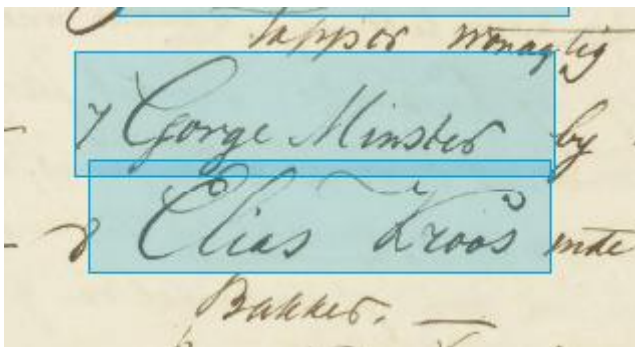 Tapper wonagtig
7 George Minster by
8 Elias Kroos inde
Bakker. —